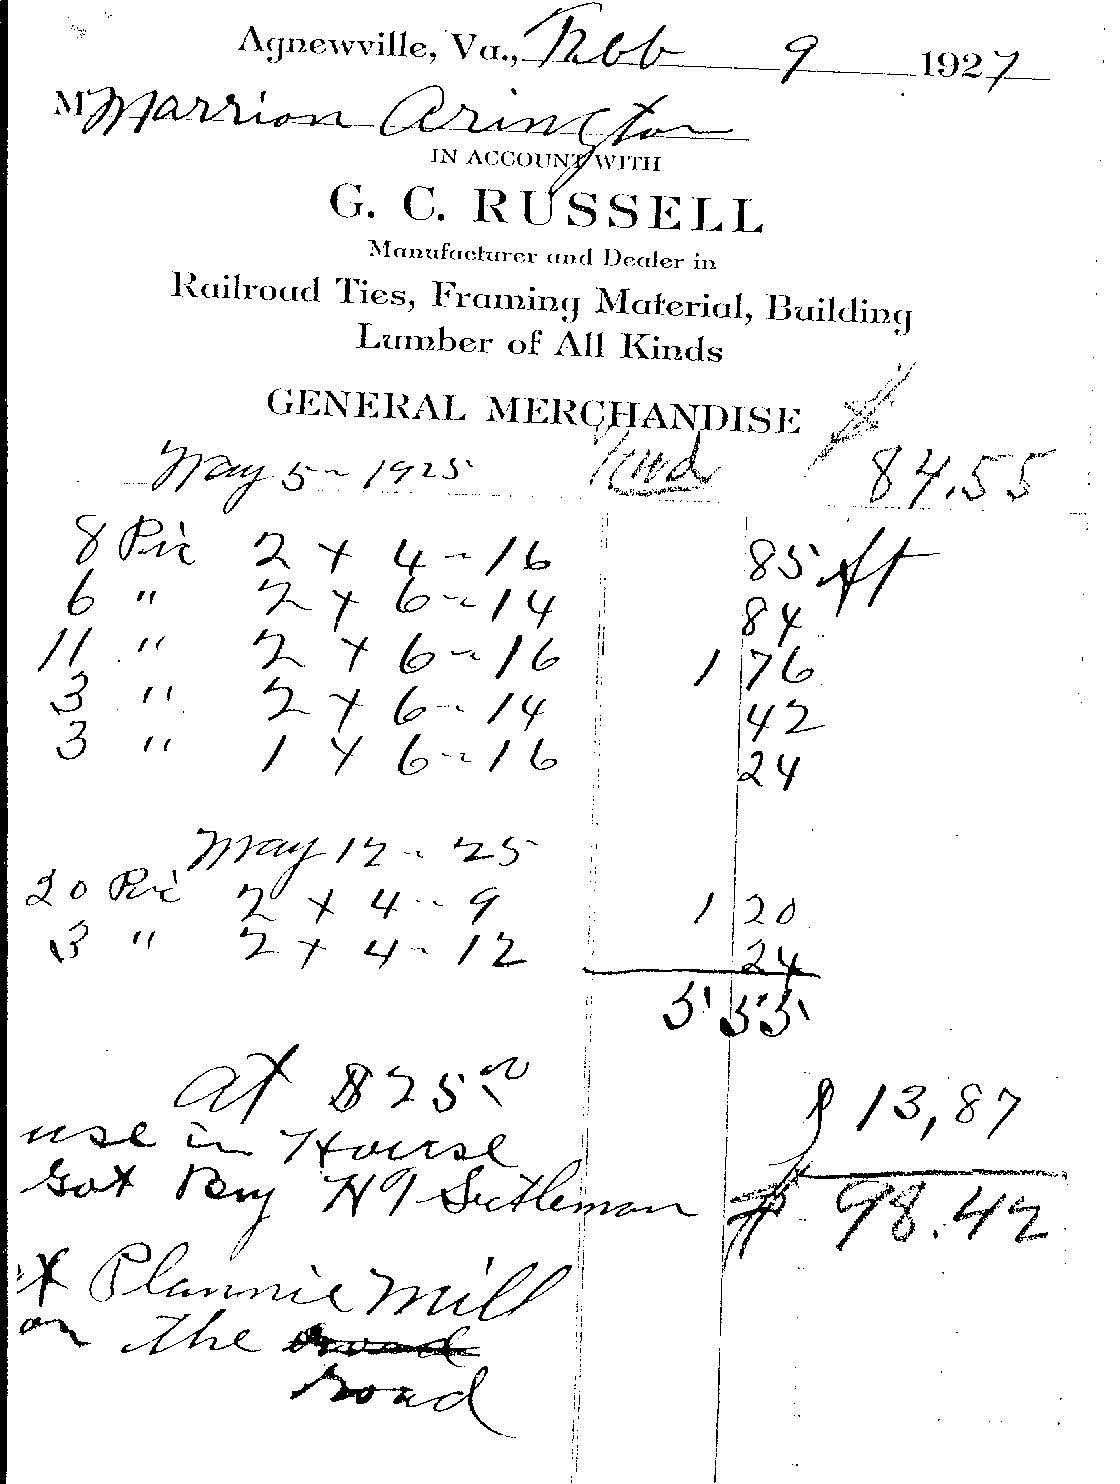 Agnewville, Va., Feb 9 1927
M Marrion Arington
IN ACCOUNT WITH
G. C. RUSSELL
Manufacturer and Dealer in
Railroad Ties, Framing Material, Building
Lumber of All Kinds
GENERAL MERCHANDISE $
May 5 - 1925 84.55
8 Pic 2 x 4 - 16 85 ft
6 " 2 x 6 - 14 84
11 " 2 x 6 - 16 1 76
3 " 2 x 6 - 14 42
3 " 1 x 6 - 16 24
May 12 - 25
20 Pic 2 x 4 - 9 1 20
3 " 2 x 4 - 12 24
5 55
at $25 $13,87
use in House
got By Settleman $ 98.42
at Plannie Mill
on the road
road